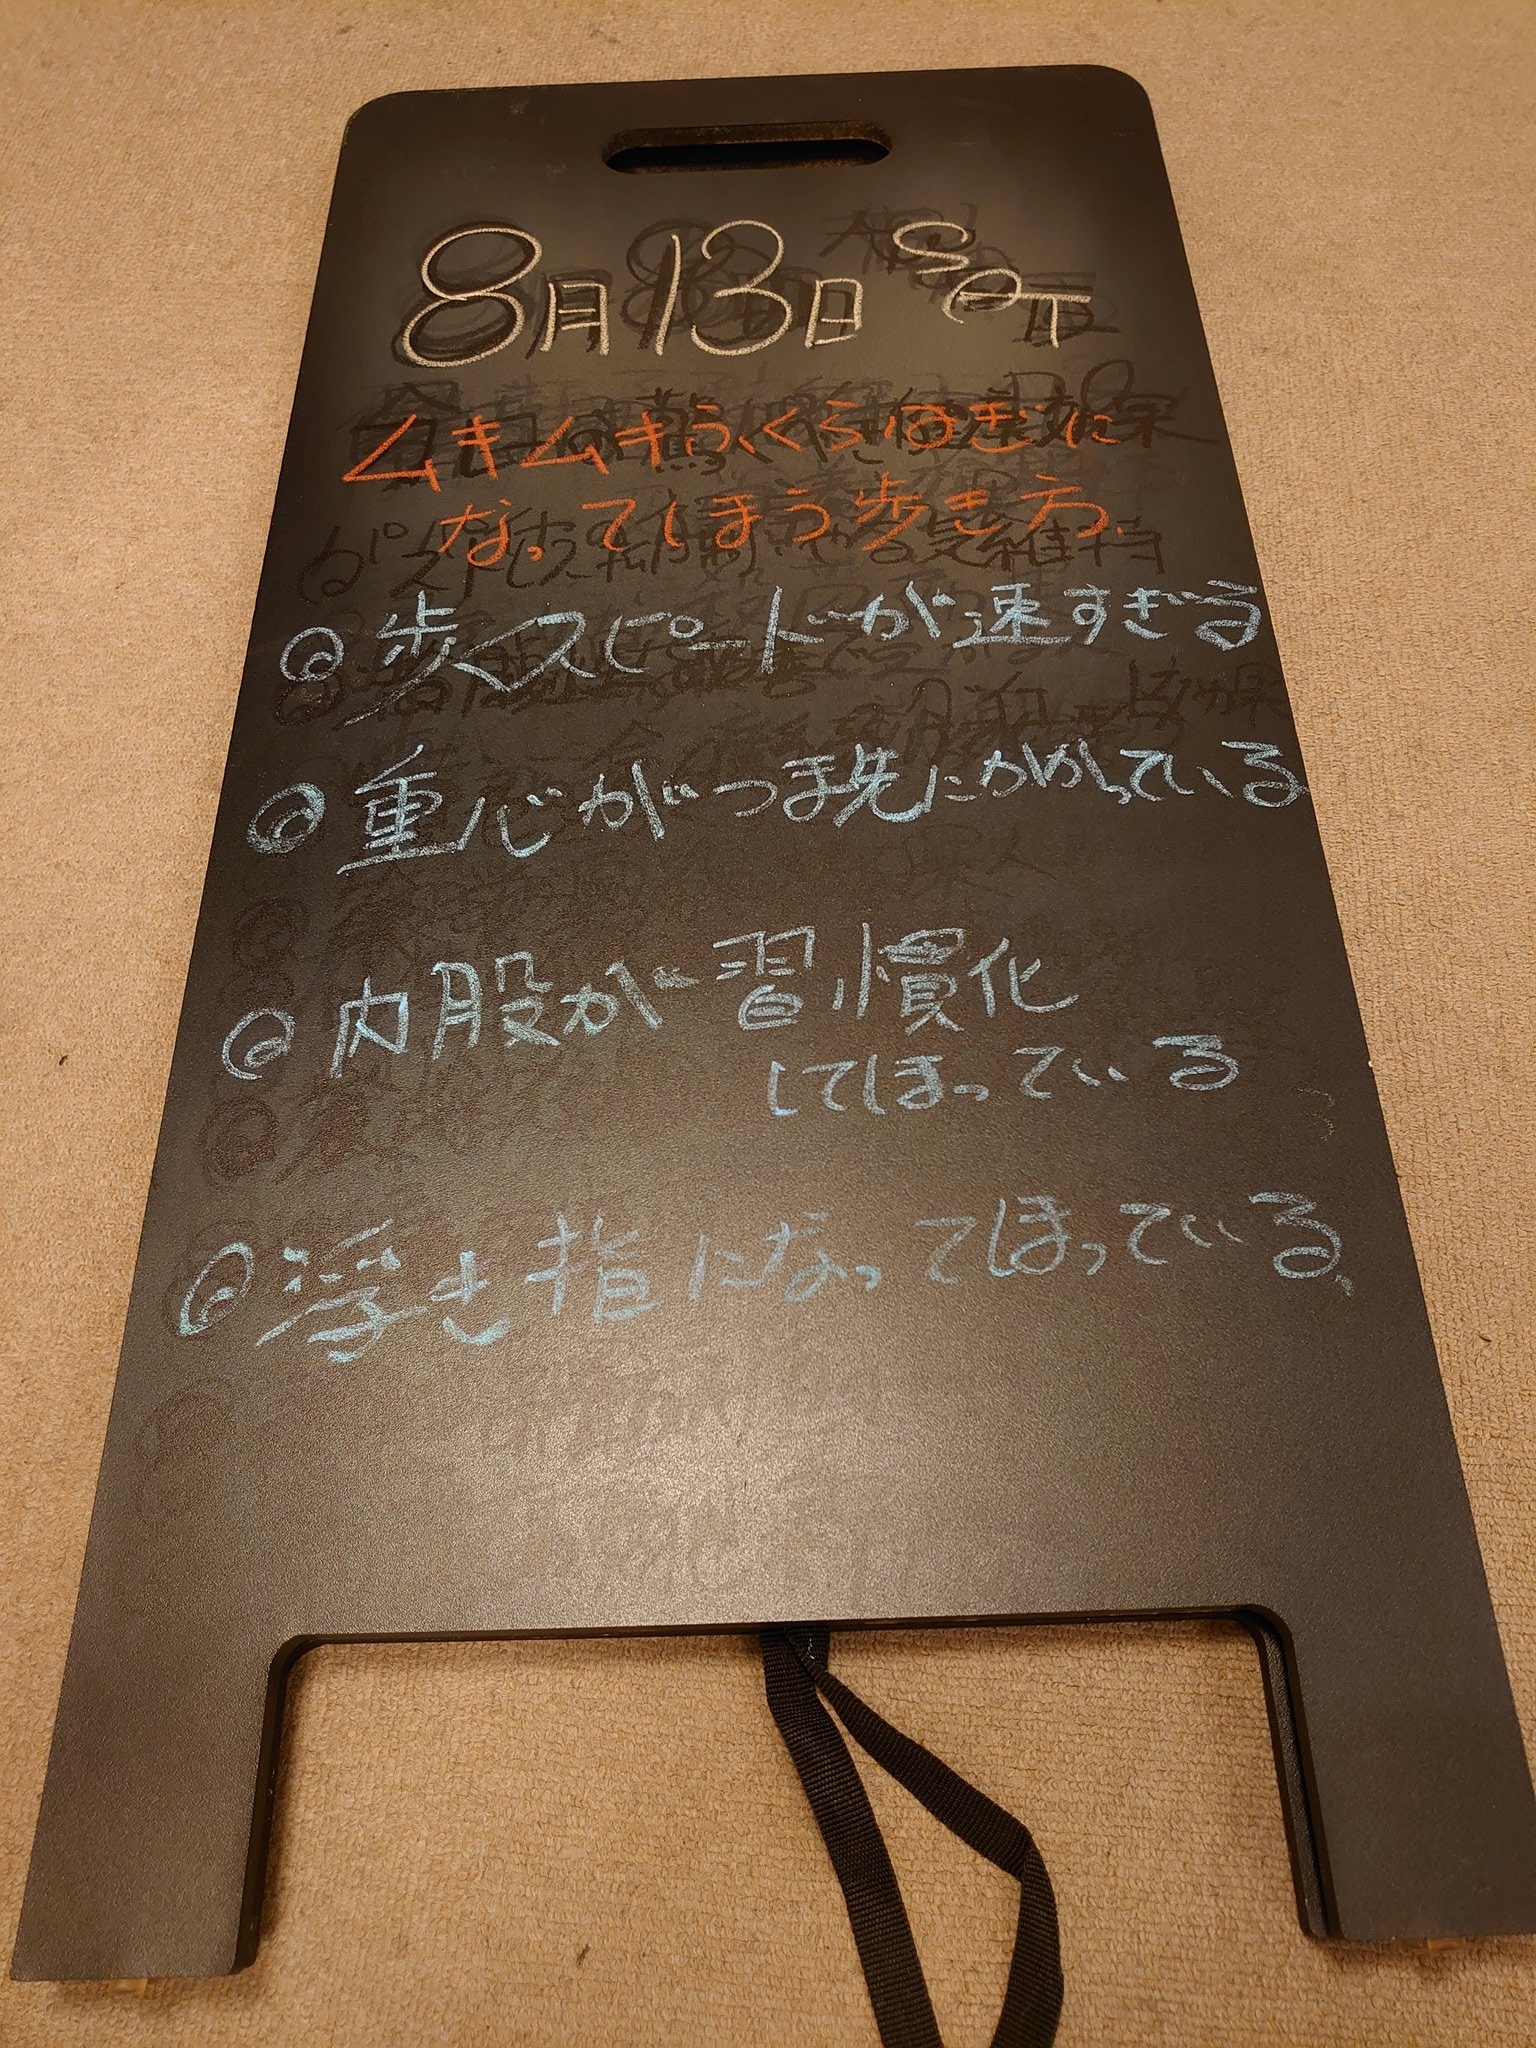 8月13日 SAT
ムキムキふくらはぎに
なってしまう歩き方
◎歩くスピードが速すぎる
◎重心がつま先にかかっている
◎内股が習慣化
してしまっている
◎浮き指になってしまっている、